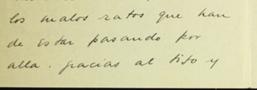 los malos ratos que han
de estar pasando por
alla. gracias al tito y